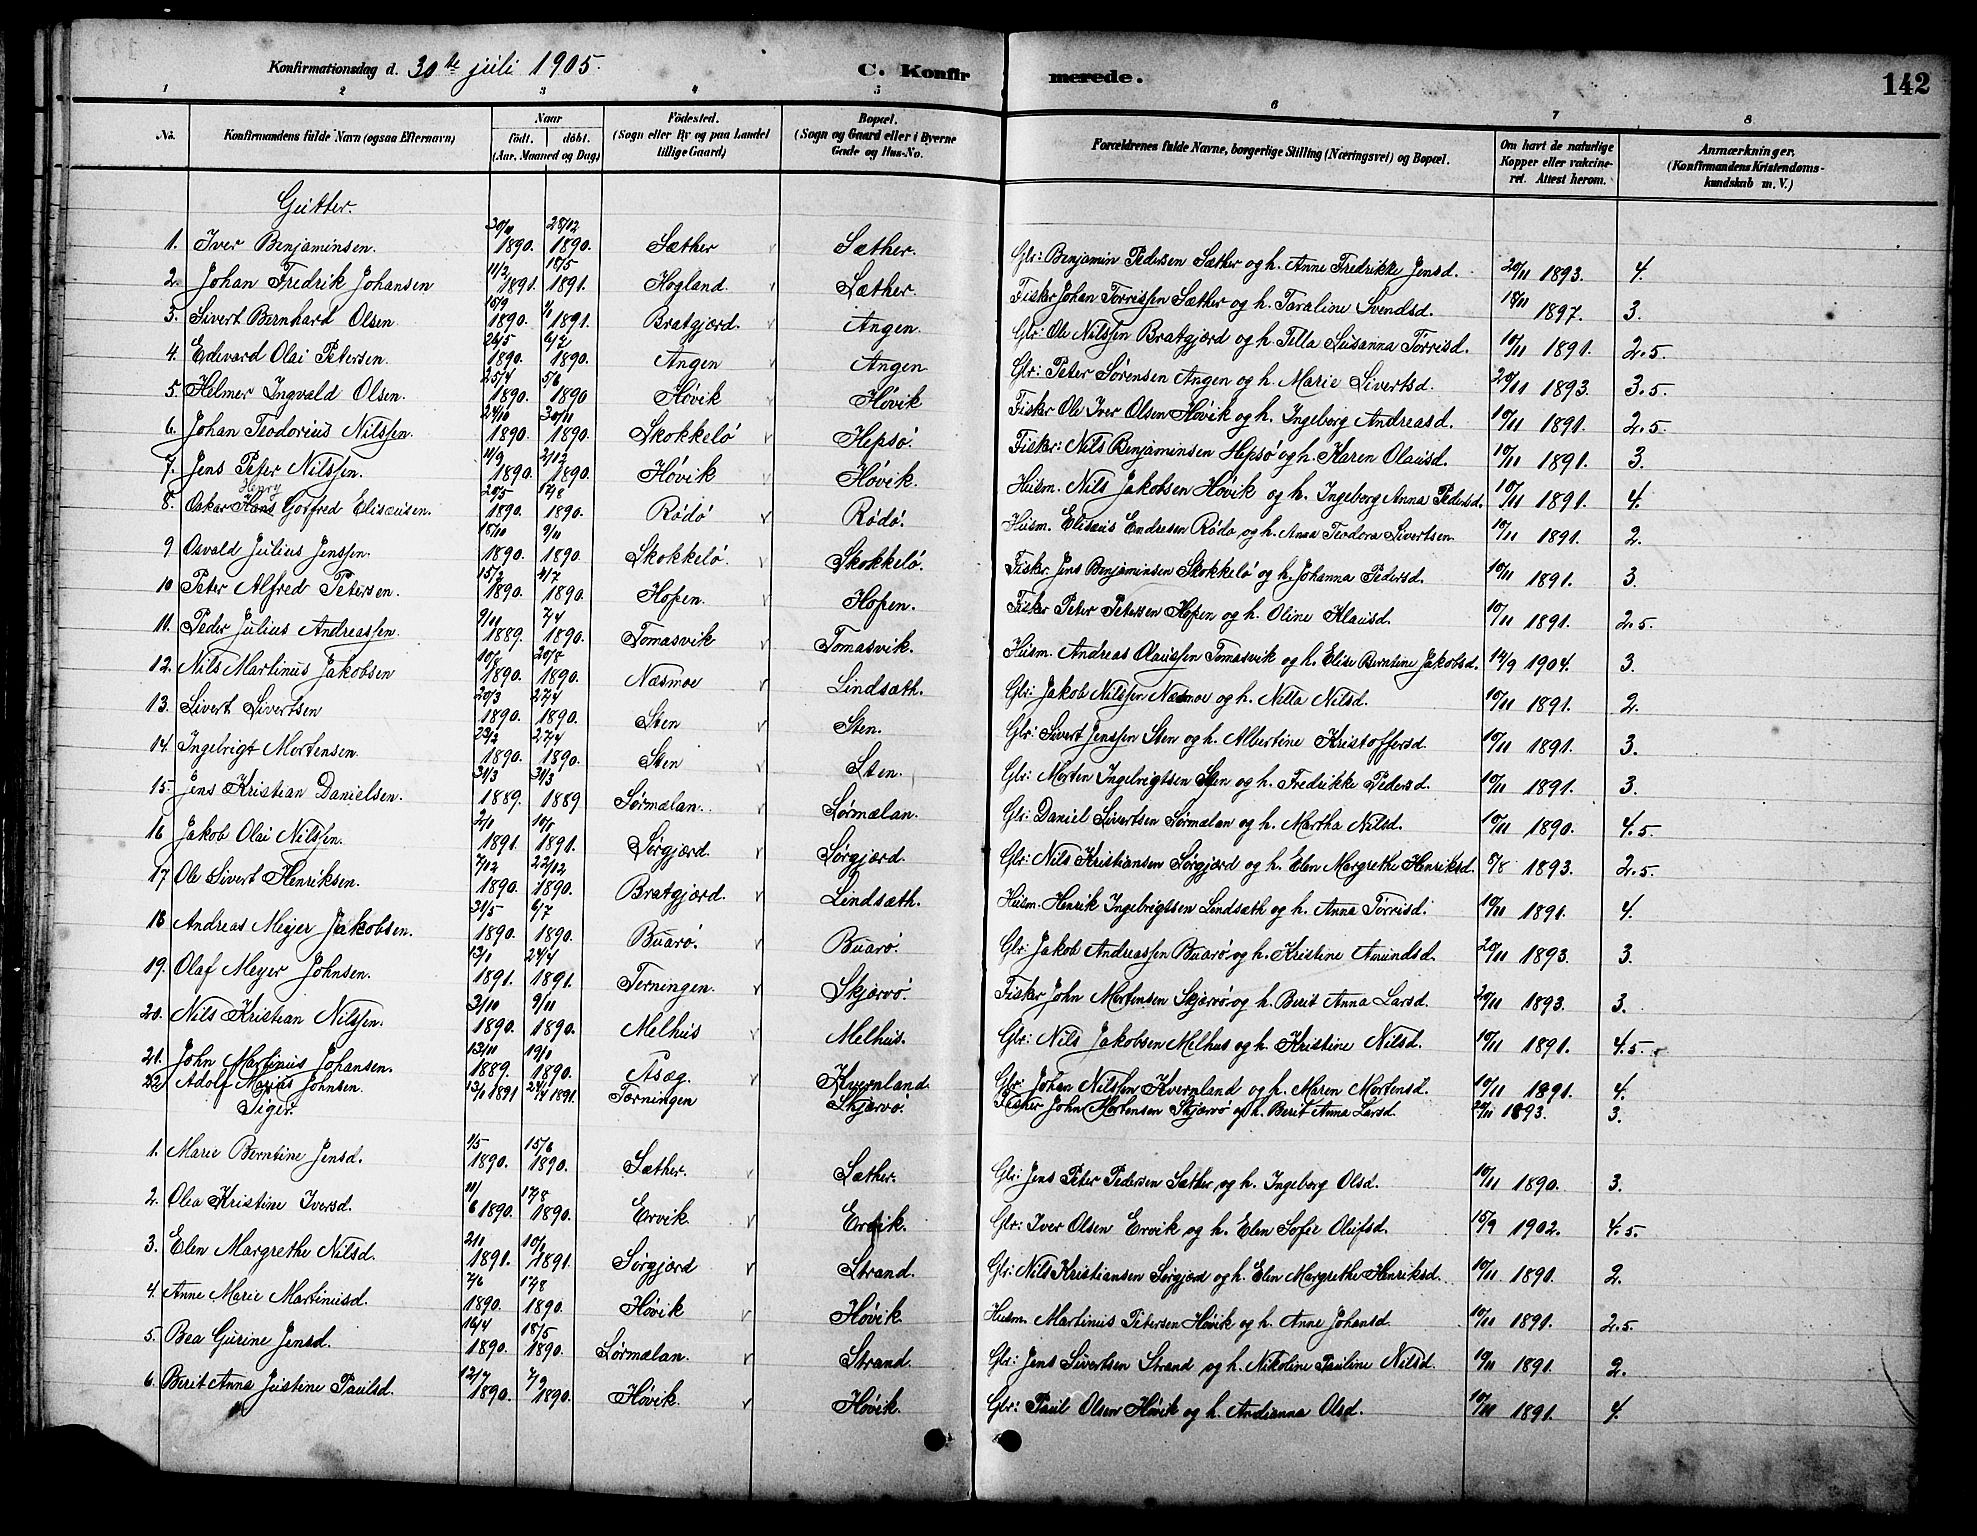 Konfirmationsdag d. 30te juli 1905.
C. Konfirmerede.
142
1 2 3 4 5 6 7 8
No. | Konfirmandens fulde Navn (ogsaa Efternavn) | Naar født. døbt. (Aar, Maaned og Dag) | Fødested. (Sogn eller By og paa Landet tillige Gaard) | Bopæl. (Sogn og Gaard eller i Byerne Gade og Hus-No. | Forældrenes fulde Navne, borgerlige Stilling (Næringsvei) og Bopæl. | Om havt de naturlige Kopper eller vakcineret. Attest herom. | Anmærkninger, (Konfirmandens Kristendomskundskab m. V.)
Gutter.
1. Iver Benjaminsen. 30/11 1890. 28/12 1890. Sæther Sæther. Glr: Benjamin Pedersen Sæther og h. Anne Fredrikke Jensd. 20/11 1893. 4.
2. Johan Fredrik Johansen 11/2 1891. 18/5 1891. Hogland Sæther. Fisker Johan Torrissen Sæther og h. Taraline Svendsd. 18/11 1897. 3.
3. Sivert Bernhard Olsen 15/9 1890. 4/1 1891. Bratgjærd. Angen. Glr: Ole Nilssen Bratgjærd og h. Tilla Susanna Torrisd. 10/11 1891. 2.5.
4. Edevard Olai Petersen. 26/5 1890. 6/7 1890. Angen Angen Glr: Peter Sørensen Angen og h. Marie Sivertsd. 20/11 1893. 3.5
5. Helmer Ingvald Olsen. 25/4 1890. 5/6 1890 Høvik Høvik Fisker Ole Iver Olsen Høvik og h. Ingeborg Andreasd. 10/11 1891. 2.5.
6. Johan Teodorius Nilssen. 24/10 1890. 30/11 1890. Skokkelø Hepsø. Fisker: Nils Benjaminsen Hepsø og h. Karen Olausd. 10/11 1891. 3.
7. Jens Peter Nilssen. 11/9 1890. 2/12 1890. Høvik Høvik. Husm. Nils Jakobsen Høvik og h. Ingeborg Anna Pedersd. 10/11 1891. 4.
Henry
8. Oskar Hans Gotfred Elisæusen. 20/5 1890. 17/8 1890. Rødø Rødø. Husm. Elisæus Endresen Rødø og h. Anna Teodora Sivertsen. 10/11 1891. 2.
9. Osvald Julius Jenssen. 18/10 1890. 9/11 1890. Skokkelø Skokkelø. Fisker Jens Benjaminsen Skokkelø og h. Johanna Pedersd. 10/11 1891. 3.
10 Peter Alfred Petersen. 15/2 1890. 4/7 1890. Hopen. Hopen. Fisker Peter Petersen Hopen og h. Oline Klausd. 10/11 1891. 2.5.
11. Peder Julius Andreassen. 9/11 1889. 7/4 1890. Tomasvik Tomasvik. Husm. Andreas Olaussen Tomasvik og h. Elise Berntine Jakobsd. 14/9 1904. 3.
12. Nils Martinus Jakobsen 10/8 1890. 20/8 1890. Næsmoe Lindsæth. Glr: Jakob Nilssen Næsmoe og h. Nilla Nilsd. 10/11 1891. 2.
13. Sivert Sivertsen 20/3 1890. 27/4 1890. Sten Sten. Glr: Sivert Jenssen Sten og h. Albertine Kristoffersd. 10/11 1891. 3.
14. Ingebrigt Mortensen. 23/2 1890. 27/4 1890. Sten Sten. Glr: Morten Ingebrigtsen Sten og h. Fredrikke Pedersd. 10/11 1891. 3.
15. Jens Kristian Danielsen. 31/3 1889. 31/3 1889 Sørmælan. Sørmælan. Glr: Daniel Sivertsen Sørmælan og h. Martha Nilsd. 10/11 1890. 4.5.
16 Jakob Olai Nilssen. 2/1 1891. 10/5 1891. Sørgjærd. Sørgjærd. Glr: Nils Kristiansen Sørgjærd og h. Elen Margrethe Henriksd. 5/8 1893. 2.5.
17 Ole Sivert Henriksen. 7/12 1890. 22/12 1890. Bratgjærd. Lindsæth. Husm. Henrik Ingebrigtsen Lindsæth og h. Anna Torrisd. 10/11 1891. 4.
18 Andreas Meyer Jakobsen. 31/5 1890. 6/7 1890. Buarø. Buarø. Glr: Jakob Andreassen Buarø og h. Kristine Amundsd. 20/11 1893. 3.
19. Olaf Meyer Johnsen. 13/1 1891. 24/4 1891. Terningen. Skjærvø. Fisker John Mortensen Skjærvø og h. Berit Anna Larsd. 20/11 1893. 3.
20. Nils Kristian Nilssen. 3/10 1890. 9/11 1890. Melhus Melhus. Glr: Nils Jakobsen Melhus og h. Kristine Nilsd. 10/11 1891. 4.5.
21. John Martinius Johansen. 13/11 1889. 19/1 1890. Asæg. Kvernland. Glr: Johan Nilssen Kvernland og h. Maren Mortensd. 10/11 1891. 4.
22 Adolf Marius Johnsen. 13/1 1891 24/4 1891. Terningen Skjærvø. Fisker John Mortensen Skjærvø og h. Berit Anna Larsd. 20/11 1893. 3.
Piger.
1. Marie Berntine Jensd. 1/5 1890. 15/6 1890. Sæther. Sæther. Glr: Jens Peter Pedersen Sæther og h. Ingeborg Olsd. 10/11 1890. 3.
2. Olea Kristine Iversd. 11/6 1890. 17/8 1890. Ervik. Ervik. Glr: Iver Olsen Ervik og h. Elen Sofie Olufsd. 15/9 1902. 4.5.
3. Elen Margrethe Nilsd. 2/1 1891. 10/5 1891. Sørgjærd Strand. Glr: Nils Kristiansen Sørgjærd og h. Elen Margrethe Henriksd. 10/11 1890. 2.
4. Anne Marie Martinusd. 7/6 1890. 17/8 1890. Høvik Høvik. Husm. Martinus Petersen Høvik og h. Anne Johansd. 10/11 1891. 2.5.
5. Bea Gurine Jensd. 16/4 1890. 18/5 1890. Sørmælan. Strand. Glr: Jens Sivertsen Strand og h. Nikoline Pauline Nilsd. 10/11 1891. 2.
6. Berit Anna Justine Paulsd. 12/7 1890. 7/9 1890. Høvik. Høvik. Glr: Paul Olsen Høvik og h. Andianna Olsd. 10/11 1891. 4.